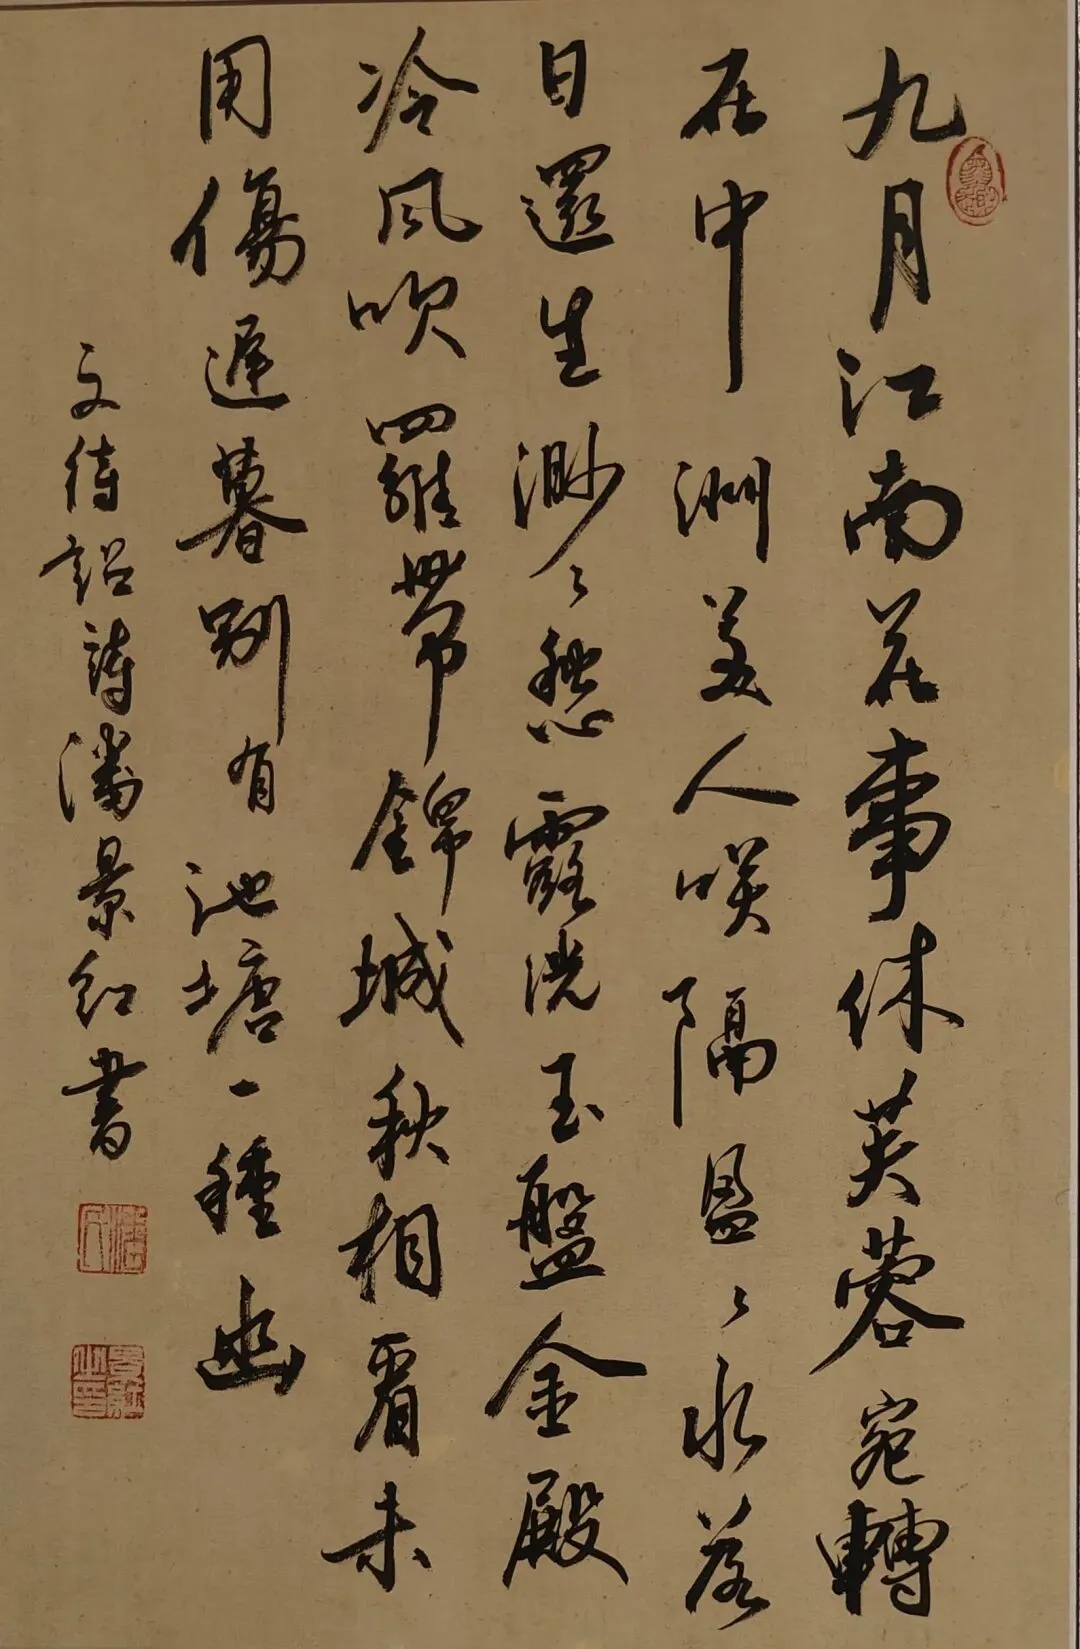 九月江南花事休芙蓉宛轉
在中洲美人咲隔盈〻水落
日還生渺〻愁露洗玉盤金殿
冷風吹羅帶錦城秋相看未
用傷遲暮別有池塘一種幽
文待詔詩潘景紅書